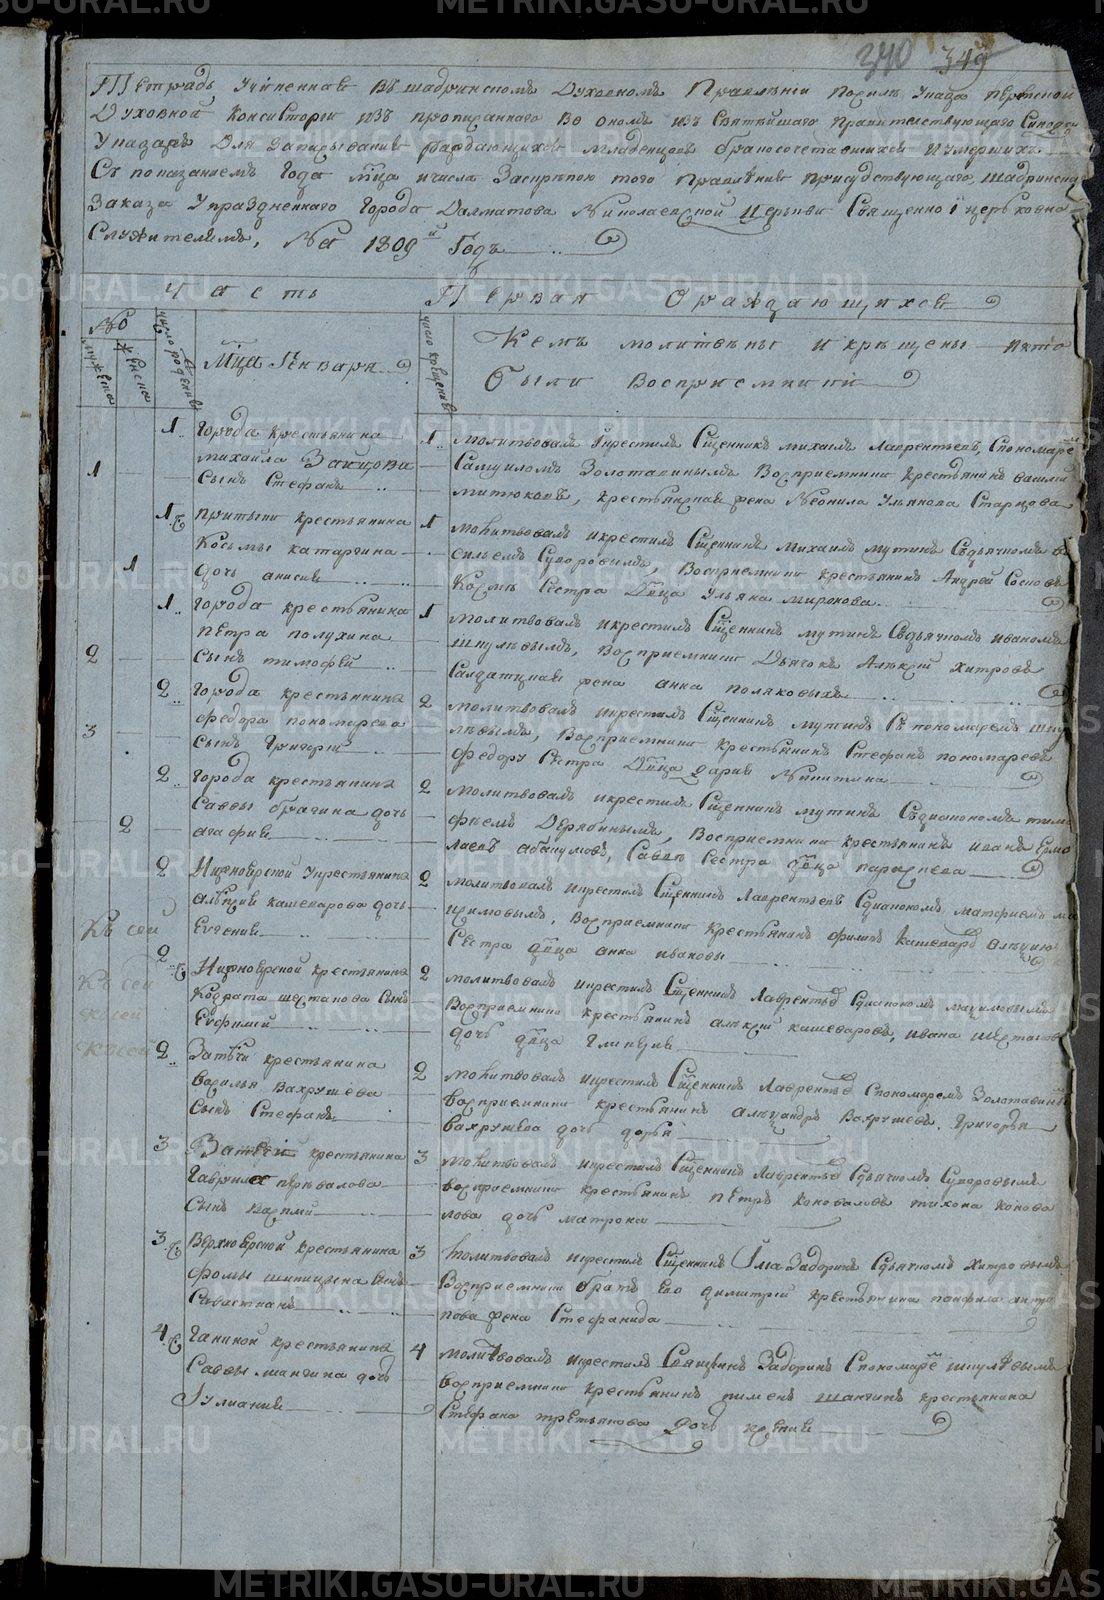 340 349
Тетрадь Учиненная Въ шадринскомъ Духовномъ Правленіи По силе Указа Пермской
Духовной Консисторіи изъ пропиcанного во ономъ изъ Святѣйшаго Правительствующаго Синода
Указаръ Для Записыванія раждающихся младенцовъ бракосочетавшихся и умершихъ
Съ показаніемъ Года мца и числа Заскрѣпою того Правленія присудствующаго, Шадринска
Заказа Упраздненнаго Города Далматова Николаевской Церкви Священно і церьковно
Служителямъ, На 1809й Годъ
Часть Первая О раждающихся
№ мужеска женска
число рожденія
Мца Генваря
число крещенія
Кемъ молитвены и крещены и кто
были восприемники
1 1 Города крестьянина
михаила Занцова
сынъ Стефанъ
1 молитвовалъ и крестилъ Сщенникъ михаилъ Лаврентьевъ, Спономарё
Самуиломъ Золотавинымъ Восприемники Крестьянинъ васили
митюковъ, крестьянская жена Неонила Ульянова Старцова
1 1 притыки крестьянина
Косьмы катаргина
дочь анисия
1 молитвовалъ и крестилъ Сщенникъ Михаилъ мутинъ Съдьячкомъ ва
сильемъ Суворовымъ, Восприемники крестьянинъ Андрей Сосновъ
Козмы Сестра Двца Ульяна миронова
2 1 города крестьянина
петра полухина
сынъ тимофей
1 молитвовалъ и крестилъ Сщенникъ мутинъ Съдьячкомъ иваномъ
шкулевымъ, Восприемники Дьячокъ Алексѣй Хитровъ
Салдатская жена анна поляковыхъ
3 2 города крестьянина
федора пономарева
сынъ Григорій
2 молитвовалъ и крестилъ Сщенникъ мутинъ Съ пономаремъ шку
левымъ, Восприемники крестьянинъ Стефанъ пономаревъ
федору Сестра Двца дария Никитина
2 2 города крестьянина
Саввы брагина дочь
агафия
2 молитвовалъ и крестилъ Сщенникъ мутинъ Съдиакономъ тимо
феемъ Дерябинымъ, Восприемники крестьянинъ иванъ Ермо
лаевъ абакумовъ, Савве Сестра двца параскева
2 Нижноярской крестьянина
алексия кашеварова дочь
Евгения
2 молитвовалъ и крестилъ Сщенникъ Лаврентьевъ Сдиакономъ матфиемъ ма
цимовымъ, Восприемники крестьянинъ филипъ Кашеваръ алексию
Сестра двца анна иванова
Къ сей
2 Нижноярской крестьянина
Кодрата шестакова Сынъ
Евфимей
2 молитвовалъ и крестилъ Сщенникъ Лаврентьевъ Сдиакономъ мациловымъ
Восприемники крестьянинъ алексѣй кашеваровъ, ивана шестакова
дочь двца Гликерия
Къ сей
Къ сей
Къ сей
2 Затечи крестьянина
василья вахрушева
сынъ Стефанъ
2 молитвовалъ и крестилъ Сщенникъ Лаврентьевъ Спономаремъ Золотавинымъ
восприемники крестьянинъ александръ Вахрушевъ, Григорья
вахрушева дочь дарья
3 Затечи крестьянина
гаврила перевалова
сынъ
3 молитвовалъ и крестилъ Сщенникъ Лаврентьевъ Сдьячкомъ Суворовымъ
восприемники крестьянинъ петръ коноваловъ тихона конова
лова дочь матрона
3 Верхноярской крестьянина
фомы шипицына Сынъ
Савастианъ
3 молитвовалъ и крестилъ Сщенникъ Іма Задоринъ Сдьячкомъ Хитровымъ
Восприемники братъ Его Димитрей крестьянина панфила анти
пова жена Стефанида
4 Ганиной крестьянина
Саввы шангина дочь
Іулиания
4 молитвовалъ и крестилъ Священникъ Задоринъ Спономарё шкулевымъ
восприемники крестьянинъ пименъ шангинъ крестьянина
Стефана третьякова Дочь ксения
METRIKI.GASO-URAL.RU